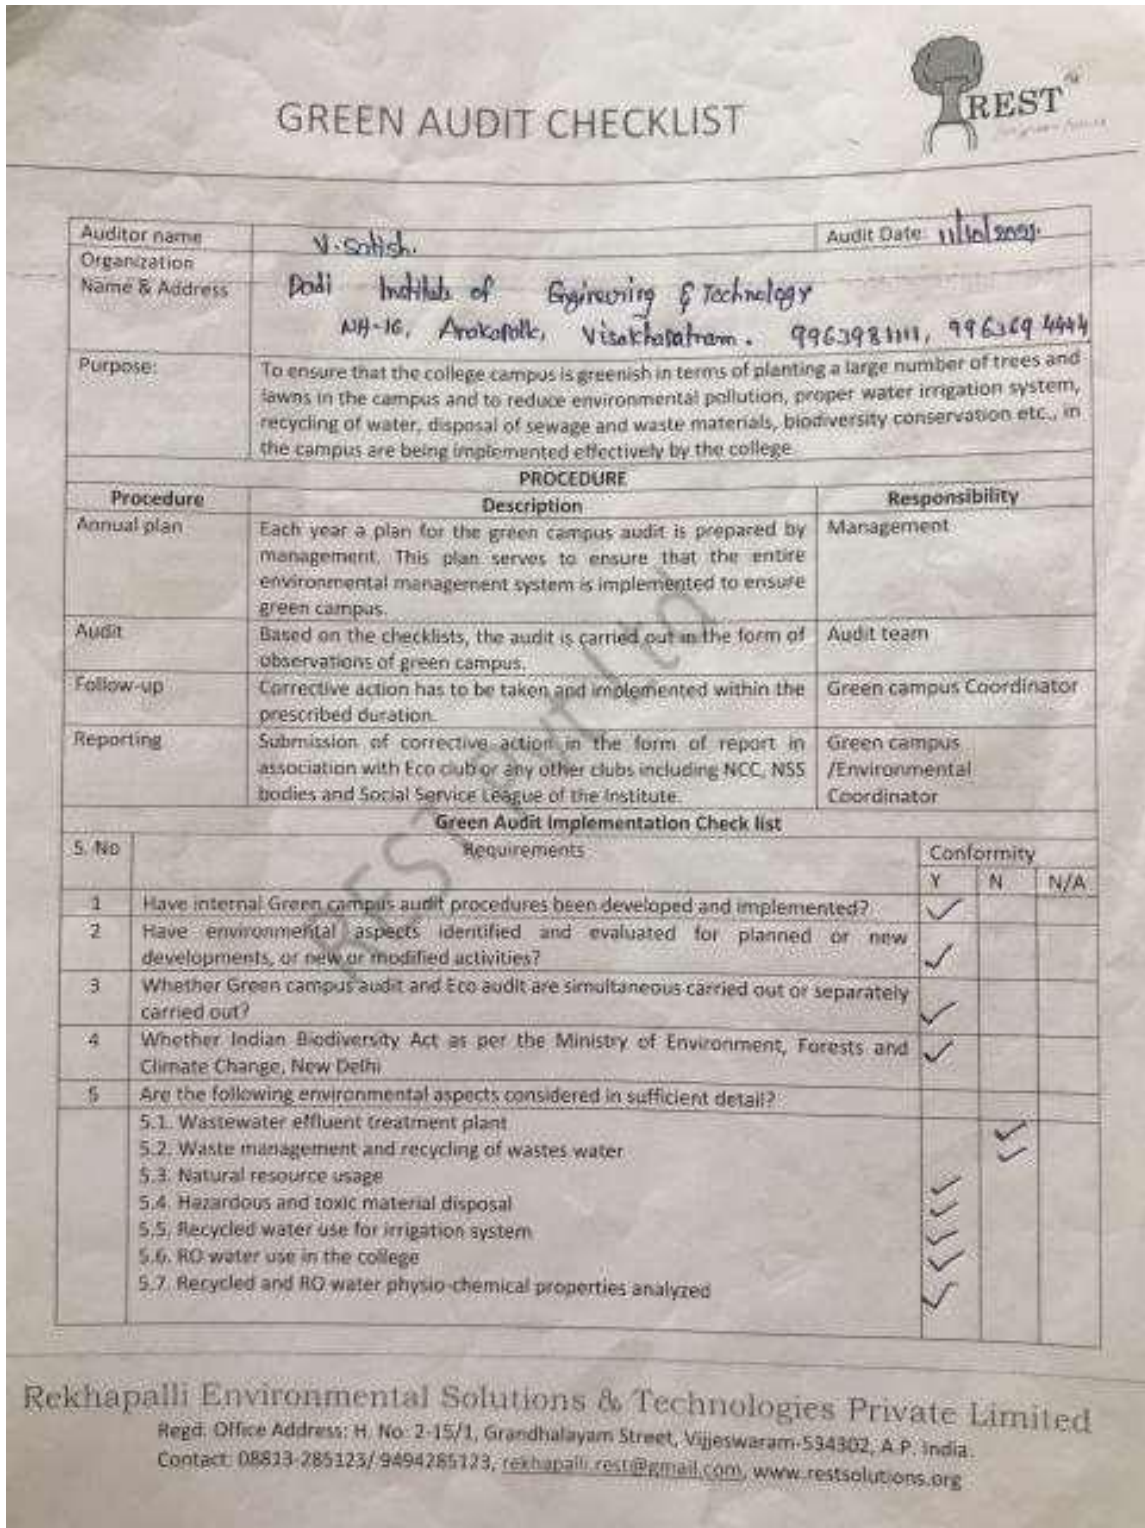 GREEN AUDIT CHECKLIST
REST
Auditor name
V. Satish.
Audit Date: 11/10/2021.
Organization
Name & Address
Dadi Institute of Engineering & Technology
NH-16, Anakapalle, Visakhapatnam. 9963981111, 9963694444
Purpose:
To ensure that the college campus is greenish in terms of planting a large number of trees and
lawns in the campus and to reduce environmental pollution, proper water irrigation system,
recycling of water, disposal of sewage and waste materials, biodiversity conservation etc., in
the campus are being implemented effectively by the college.
PROCEDURE
Procedure
Description
Responsibility
Annual plan
Each year a plan for the green campus audit is prepared by
management. This plan serves to ensure that the entire
environmental management system is implemented to ensure
green campus.
Management
Audit
Based on the checklists, the audit is carried out in the form of
observations of green campus.
Audit team
Follow-up
Corrective action has to be taken and implemented within the
prescribed duration.
Green campus Coordinator
Reporting
Submission of corrective action in the form of report in
association with Eco club or any other clubs including NCC, NSS
bodies and Social Service League of the Institute.
Green campus
/Environmental
Coordinator
Green Audit Implementation Check list
S. No
Requirements
Conformity
Y N N/A
1 Have internal Green campus audit procedures been developed and implemented? ✓
2 Have environmental aspects identified and evaluated for planned or new
developments, or new or modified activities? ✓
3 Whether Green campus audit and Eco audit are simultaneous carried out or separately
carried out? ✓
4 Whether Indian Biodiversity Act as per the Ministry of Environment, Forests and ✓
Climate Change, New Delhi
5 Are the following environmental aspects considered in sufficient detail?
5.1. Wastewater effluent treatment plant ✓
5.2. Waste management and recycling of wastes water ✓
5.3. Natural resource usage ✓
5.4. Hazardous and toxic material disposal ✓
5.5. Recycled water use for irrigation system ✓
5.6. RO water use in the college ✓
5.7. Recycled and RO water physio-chemical properties analyzed ✓
REST Pvt Ltd
Rekhapalli Environmental Solutions & Technologies Private Limited
Regd. Office Address: H. No: 2-15/1, Grandhalayam Street, Vijjeswaram-534302, A.P. India.
Contact: 08813-285123/ 9494285123, rekhapalli.rest@gmail.com, www.restsolutions.org